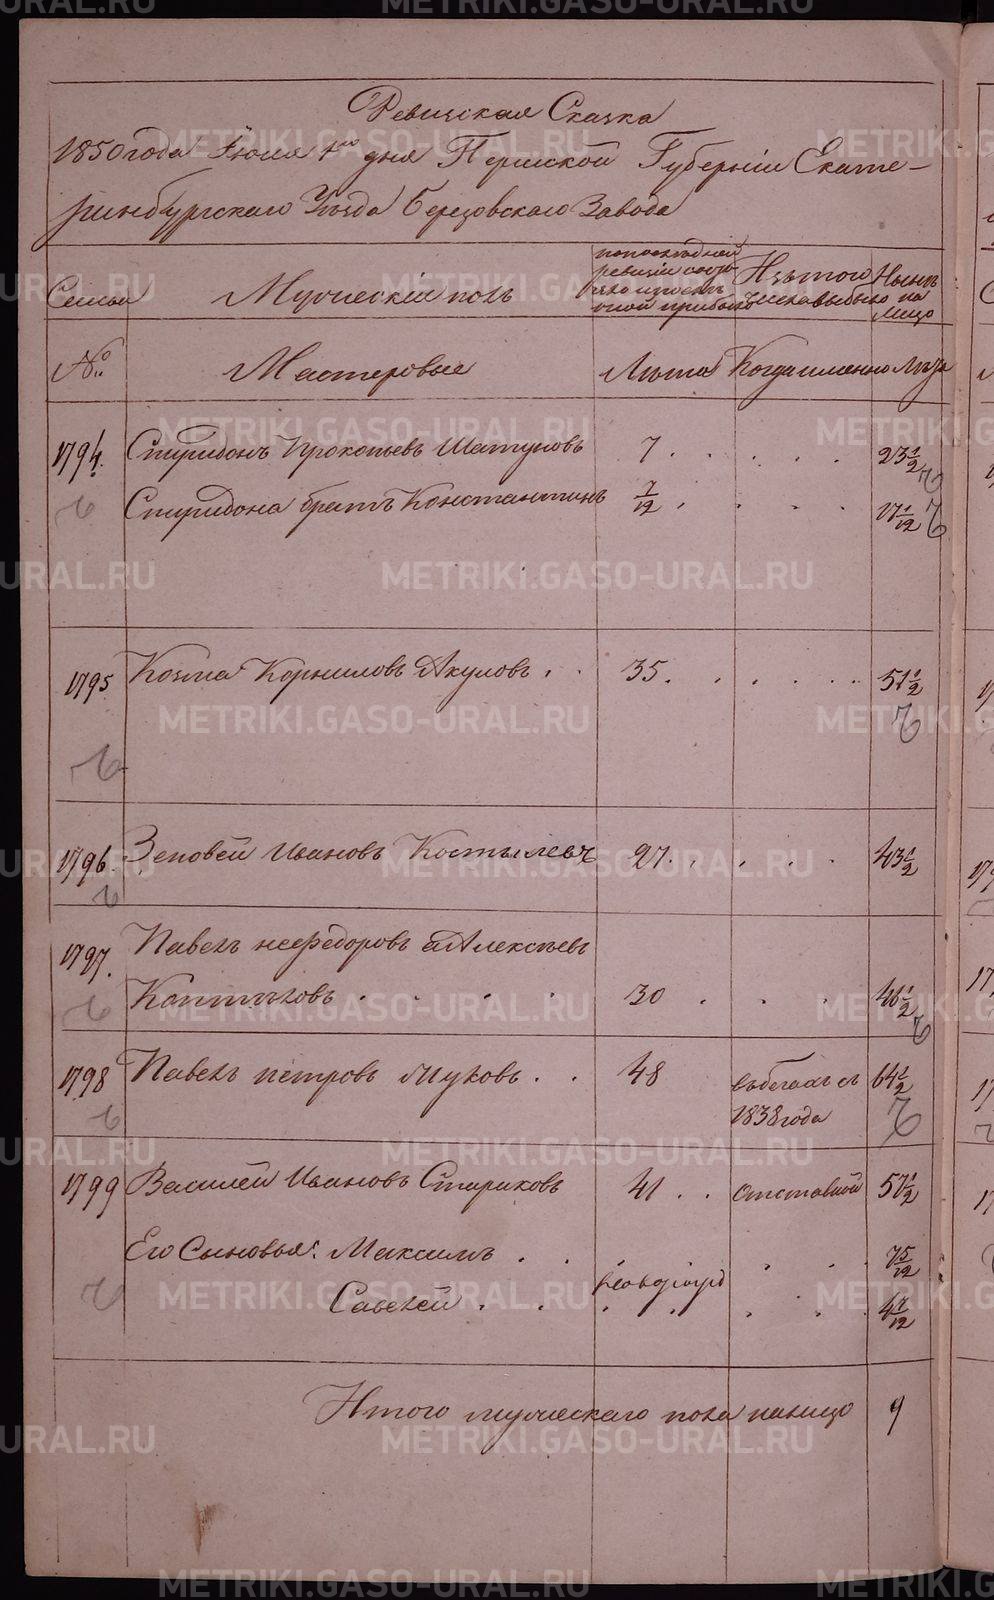 Ревижская Сказка
1850 года Июня 1го дня Пермской Губернiи Екате-
ринбургскаго Уезда Березовскаго Завода
Семьи Мужескiй полъ по последней ревизiи Изъ того Нынѣ
числа выбыло на лицо
№ Мастеровые Лѣта Когда именно Лѣта
1794. Спиридонъ Прокопьевъ Шатуновъ 7 . . . . 23 1/2
Спиридона братъ Константинъ 7/12 . . . . 17 1/12
1795 Козма Корниловъ Акуловъ . . 35 . . . . 51 1/2
1796. Зеновей Ивановъ Костылевъ 27 . . . . 43 1/2
1797. Павелъ не Федоровъ а Алексѣевъ
30 . . . 46 1/2
1798 Павелъ петровъ . . 48 въбегахъ съ 64 1/2
1838 года
1799 Василей Ивановъ Стариковъ 41 . . отставной 57 1/2
Его Сыновья: Максимъ . . . . 7 5/12
Савелей . . . . 4 1/12
Итого мужескаго пола налицо 9
METRIKI.GASO-URAL.RU